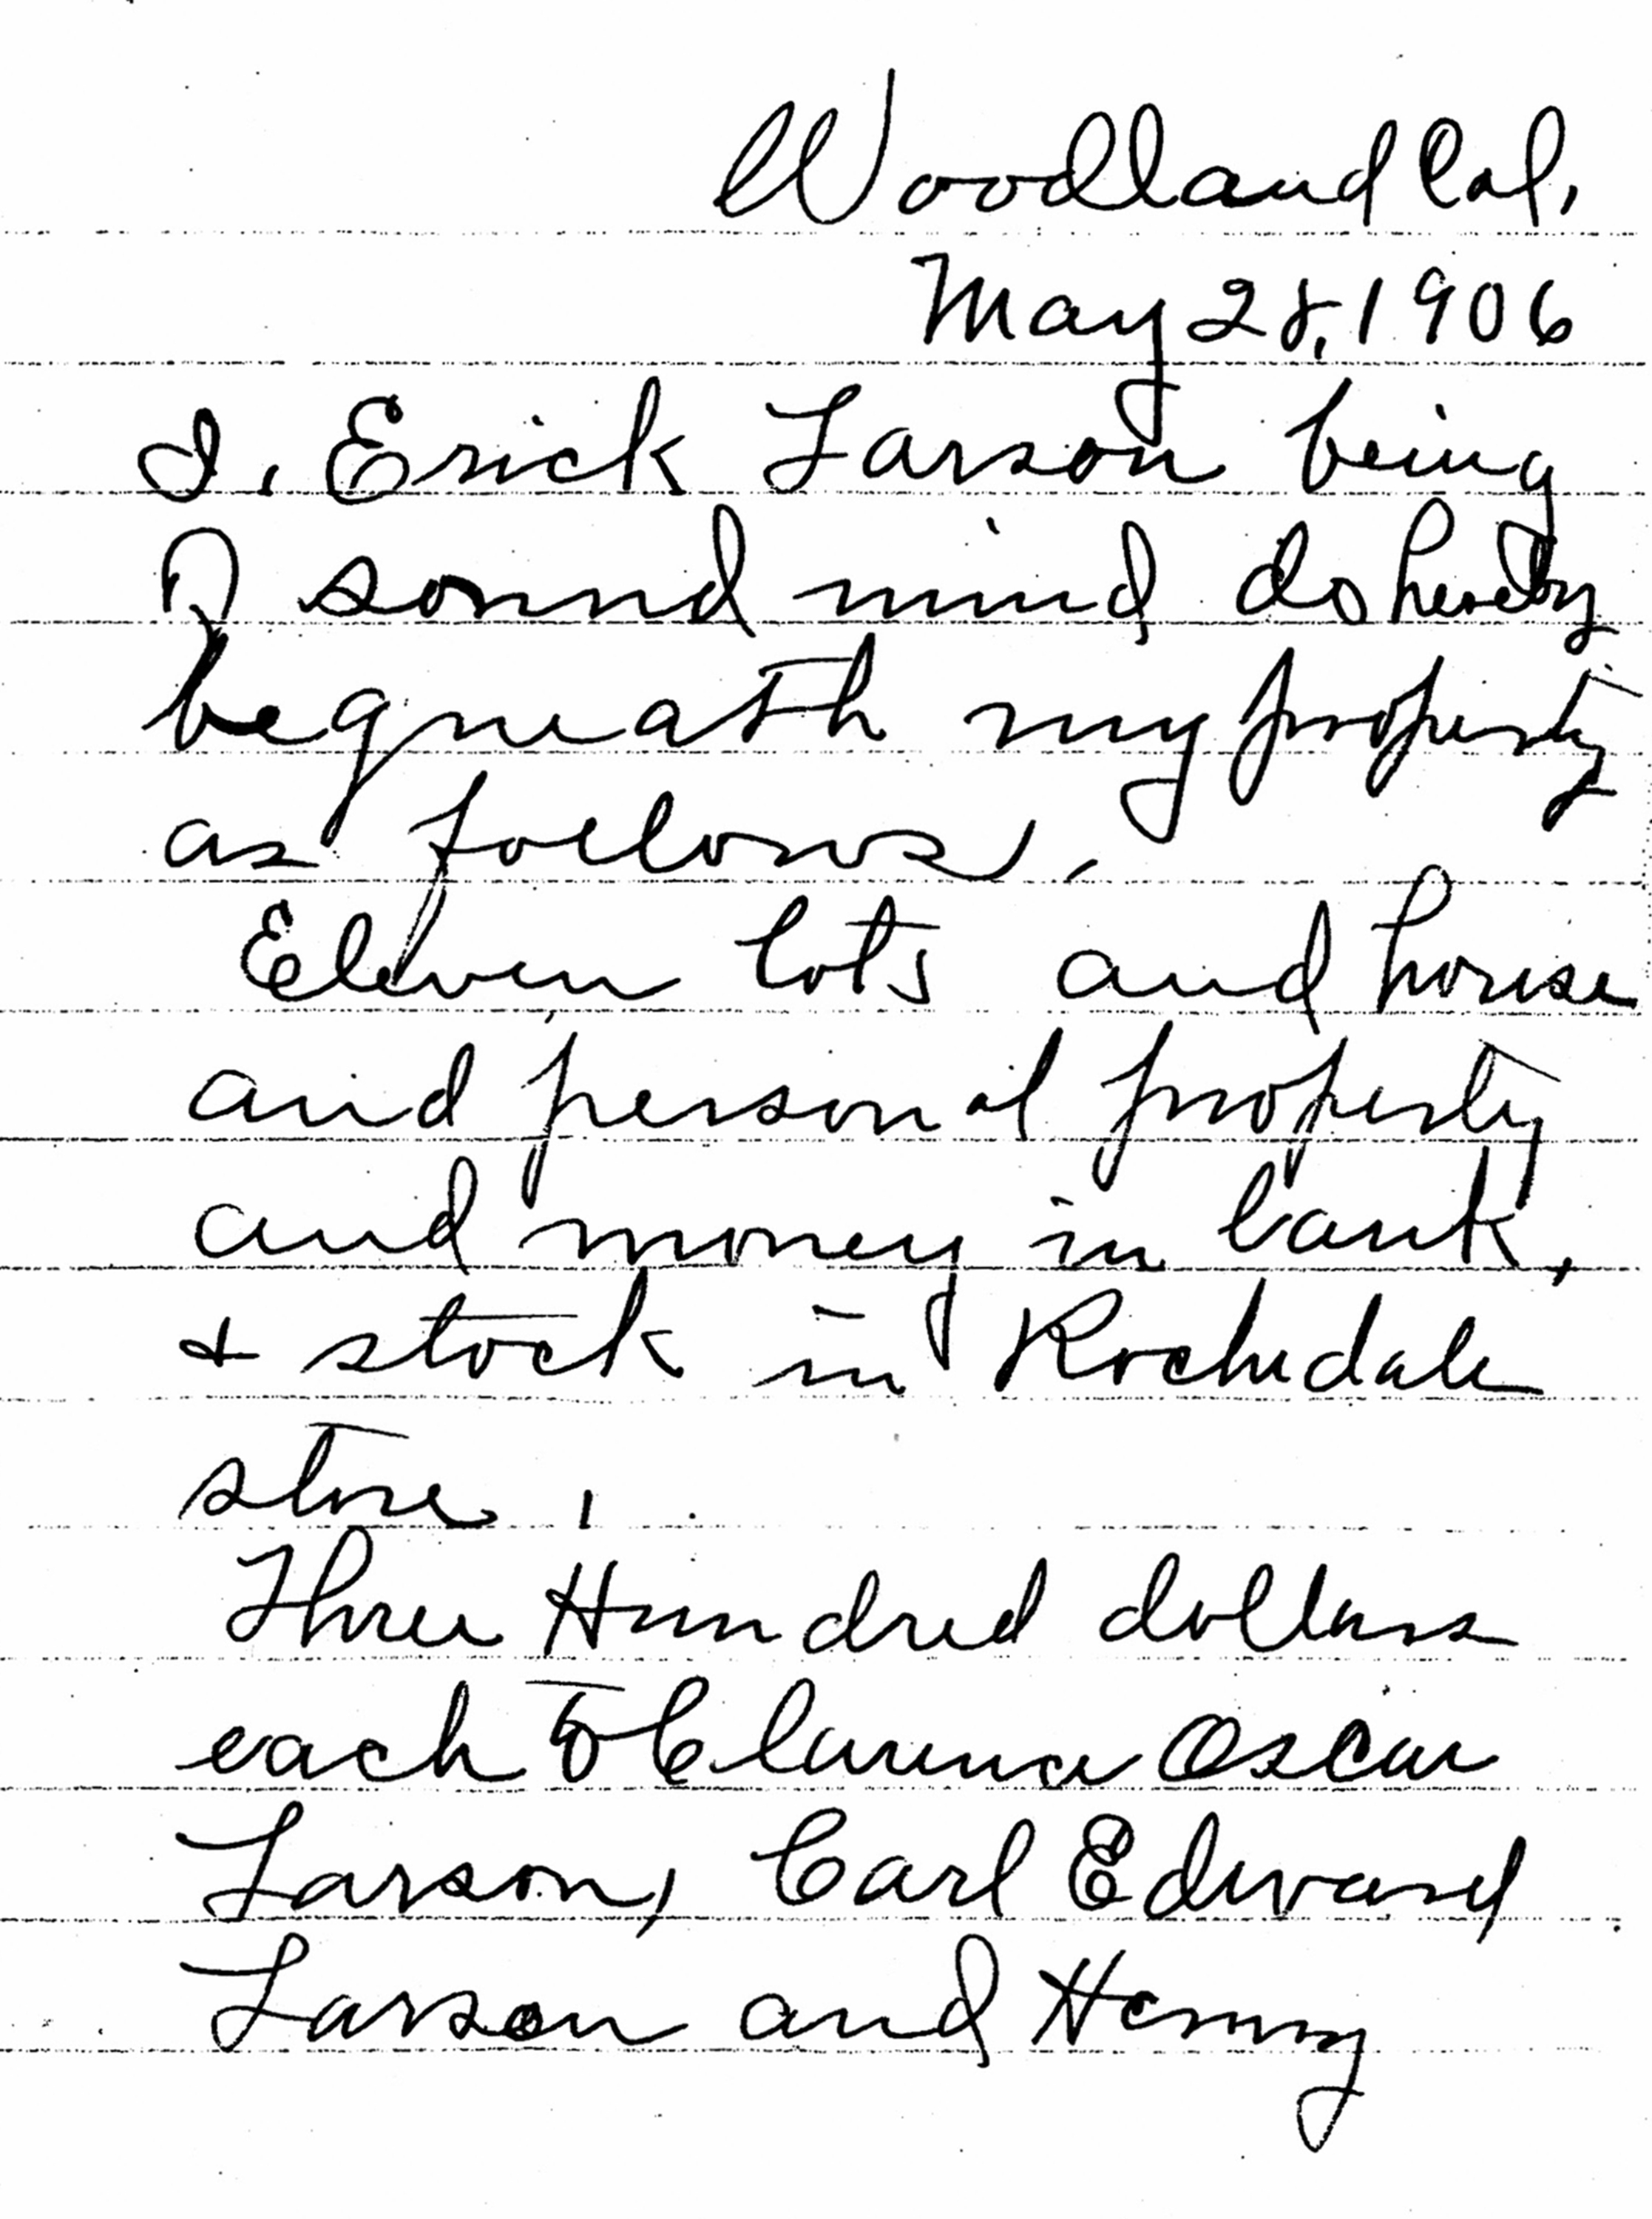 Woodland Cal.
May 28, 1906
I, Erick Larson being
of sound mind, do hereby
bequeath my property
as follows,
Eleven lots and house
and personal property
and money in bank,
+ stock in Rochedale
store,
Three Hundred dollars
each to Clarence Oscar
Larson, Carl Edward
Larson and Henry